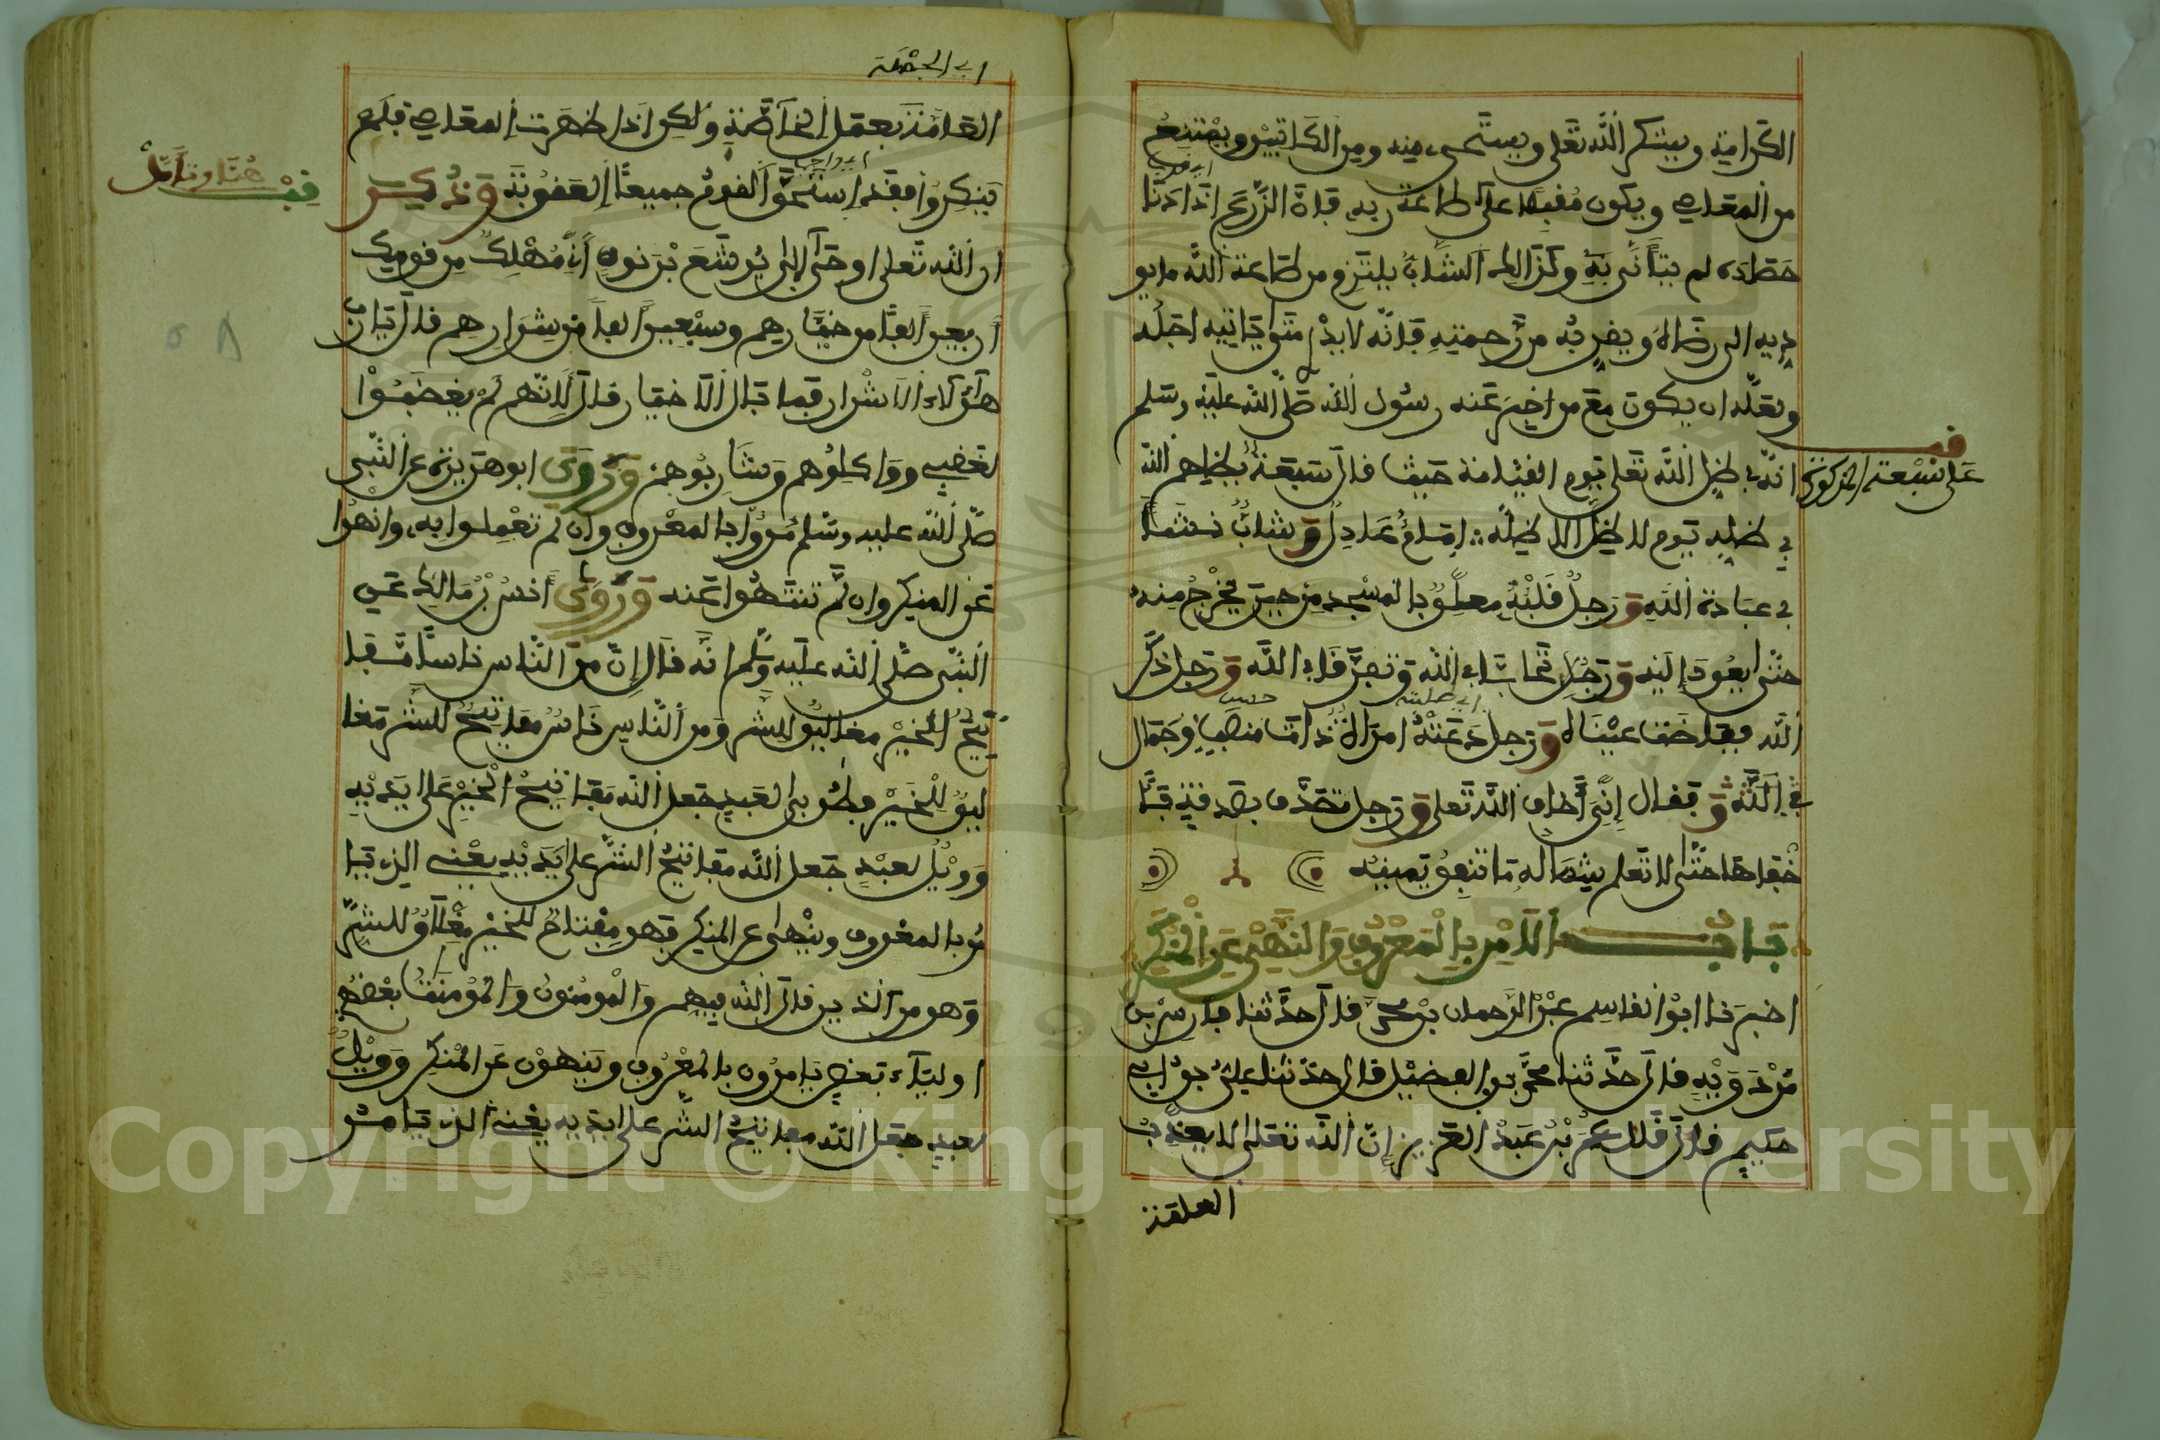 الكرامية ويشكر الله تعلى ويستحي منه ومن الكاتبين ويمتنع
من المعاصي ويكون مقبلا على طاعة ربه فان الزرع اذا دنا
حصاده لم يتأنى به وكذالك الشاب يلتزم من طاعة الله ما يو
ديه الى رضاه ويقربه من رحمته فانه لا يدر متى ياتيه اجله
ولعله ان يكون مع من اخبر عنه رسول الله صلى الله عليه وسلم
انه في ظل الله تعلى يوم القيامة حيث قال سبعة يظلهم الله
في ظله يوم لا ظل الا ظله امام عادل وشاب نشئا
في عبادة الله ورجل قلبه معلق بالمسجد من حين يخرج منه
حتى يعود إليه ورجلان تحابا في الله وتفرقا في الله ورجل ذكر
الله ففاضت عيناه ورجل دعته امرأة ذات منصب وجمال
فقال إني أخاف الله تعلى ورجل تصدق بصدقة فا
خفاها حتى لا تعلم شماله ما تنفق يمينه
باب الامر بالمعروف والنهي عن المنكر
اخبرنا ابو القاسم عبد الرحمان بن محمد قال حدثنا فارس بن
مردويه قال حدثنا محمد بن الفضيل قال حدثنا علي بن أبي
حكيم قال قال عمر بن عبد العزيز إن الله تعلى لا يعذب
العامة
قف
على سبعة المذكورة
العامة بعمل الخاصة ولكن اذا ظهرت المعاصي فلم
ينكروا فقد استحق القوم جميعا العقوبة وذكر
ان الله تعلى اوحى إلى يوشع بن نون أني مهلك من قومك
اربعين ألفا من خيارهم وسبعين ألفا من شرارهم قال يارب
هؤلاء الاشرار فما بال الاخيار قال لانهم لم يغضبوا
لغضبي وواكلوهم وشاربوهم وروى ابو هريرة عن النبي
صلى الله عليه وسلم مروا بالمعروف وان لم تعملوا به وانهوا
عن المنكر وان لم تنتهوا عنه وروى أنس بن مالك عن
النبي صلى الله عليه وسلم انه قال إن من الناس ناسا مفا
تيح للخير مغاليق للشر ومن الناس ناس مفاتيح للشر مغا
ليق للخير فطوبى لعبد جعل الله مفاتيح الخير على يديه
وويل لعبد جعل الله مفاتيح الشر على يديه يعني الذي يا
مر بالمعروف وينهى عن المنكر فهو مفتاح للخير مغلاق للشر
وهو من الذين قال الله فيهم والمومنون والمؤمنات بعضهم
اولياء بعض يامرون بالمعروف وينهون عن المنكر وويل
لعبد جعل الله مفاتيح الشر على يديه يعني الذي يامر
قف هنا وتأمل
Copyright © King Saud University